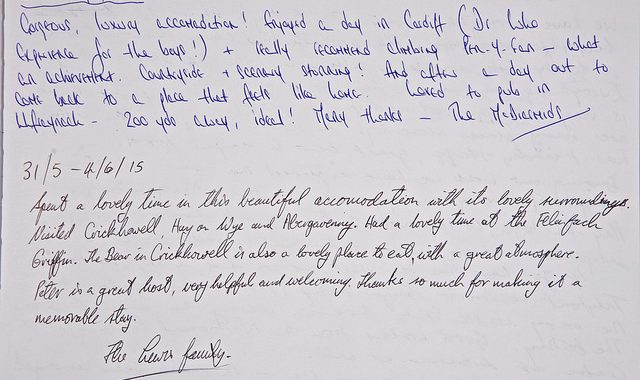 Gorgeous, luxury accomodation! Enjoyed a day in Cardiff (Dr Who
Experience for the boys!) + really recommend climbing Pen-Y-Fan – what
an achievement. Countryside + scenery stunning! And after a day out to
come back to a place that feels like home. Loved to pub in
200 yds away, ideal! Many thanks – The McDiarmids
31/5 - 4/6/15
Spent a lovely time in this beautiful accomodation with its lovely surroundings.
Visited Crickhowell, Hay on Wye and Abergavenny. Had a lovely time at the Felinfach
Griffin. The Bear in Crickhowell is also a lovely place to eat, with a great atmosphere.
Peter is a great host, very helpful and welcoming. Thanks so much for making it a
memorable stay.
The Lewis family.